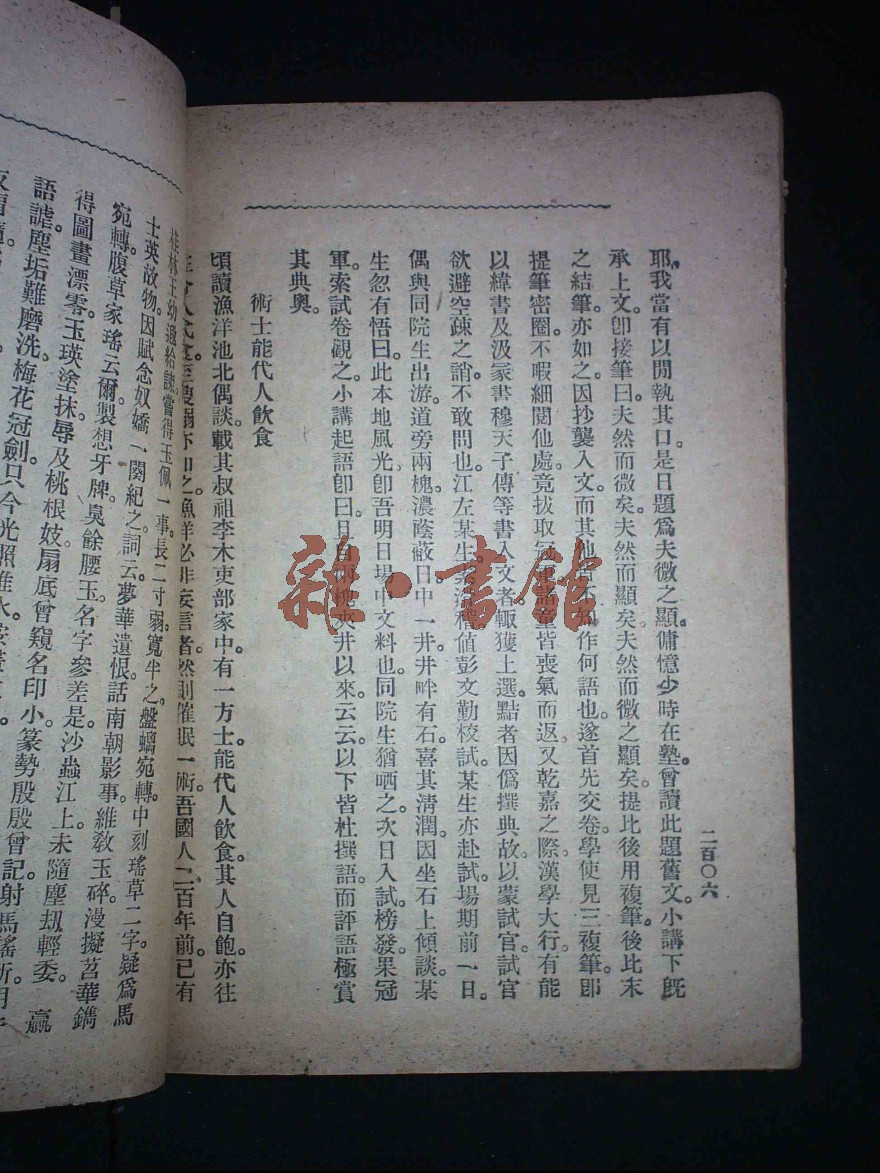 二百〇六
耶。我當有以閒執其口。是日題爲夫微之顯。傭憶少時在塾。曾讀此題舊文。小講下旣
承上文。卽接筆曰。夫然而微矣。夫然而顯矣。夫然而微之顯矣。提比後用複筆。後比末
之結筆亦如之。因抄襲入文。而其他皆不知作何語也。遂首先交卷。學使見三複筆。卽
提筆密圈。不暇細閱他處。竟拔取冠軍。諸童皆喪氣而返。又乾嘉之際。漢學大行。有能
以緯書及汲冢書穆天子傳等書入文者。輒獲上選。點者因僞撰典故。以蒙試官。試官
欲避空疎之誚。不敢問也。江左某生。素滑稽。値彭文勤校試。某生亦赴試。場期前一日。
偶與同院生出游。道旁兩槐。濃蔭蔽日。中一井。井畔有石。喜其清潤。因坐石上傾談。某
生忽有悟曰。此本地風光。卽吾明日場中文料也。同院生猶哂之。次日入試。榜發。果冠
軍。索試卷觀之。小講起語卽曰。且自兩槐夾井以來云云。以下皆杜撰語。而評語極賞
其典奧。
術士能代人飲食
頃讀漁洋池北偶談。載其叔祖李木吏部家中。有一方士。能代人飲食。其人自飽。亦往
之漁洋必非妄言者。然則催眠一術。吾國人二百年前已有
桂林王幼遐給諫。嘗得玉佩一事。長二寸弱。寬半之。盤螭宛轉。中刻瑤草二字。疑爲馬
士英故物。因賦念奴嬌一闋紀之。詞云。夢華遺恨。話南朝影事。維敎玉碎。漫擬苕華鐫
宛轉。腹草家瑤云爾製。想牙牌臭餘腰玉。名字參差是。沙蟲江上。未隨塵刼輕委。 贏
得圖畫漂零。玉瑛塗抹。辱及桃根妓。扇底曾窺名印小。篆勢殷殷曾記。射馬謠
語謔。塵垢難磨洗。梅花冠劍。只今光照淮水。